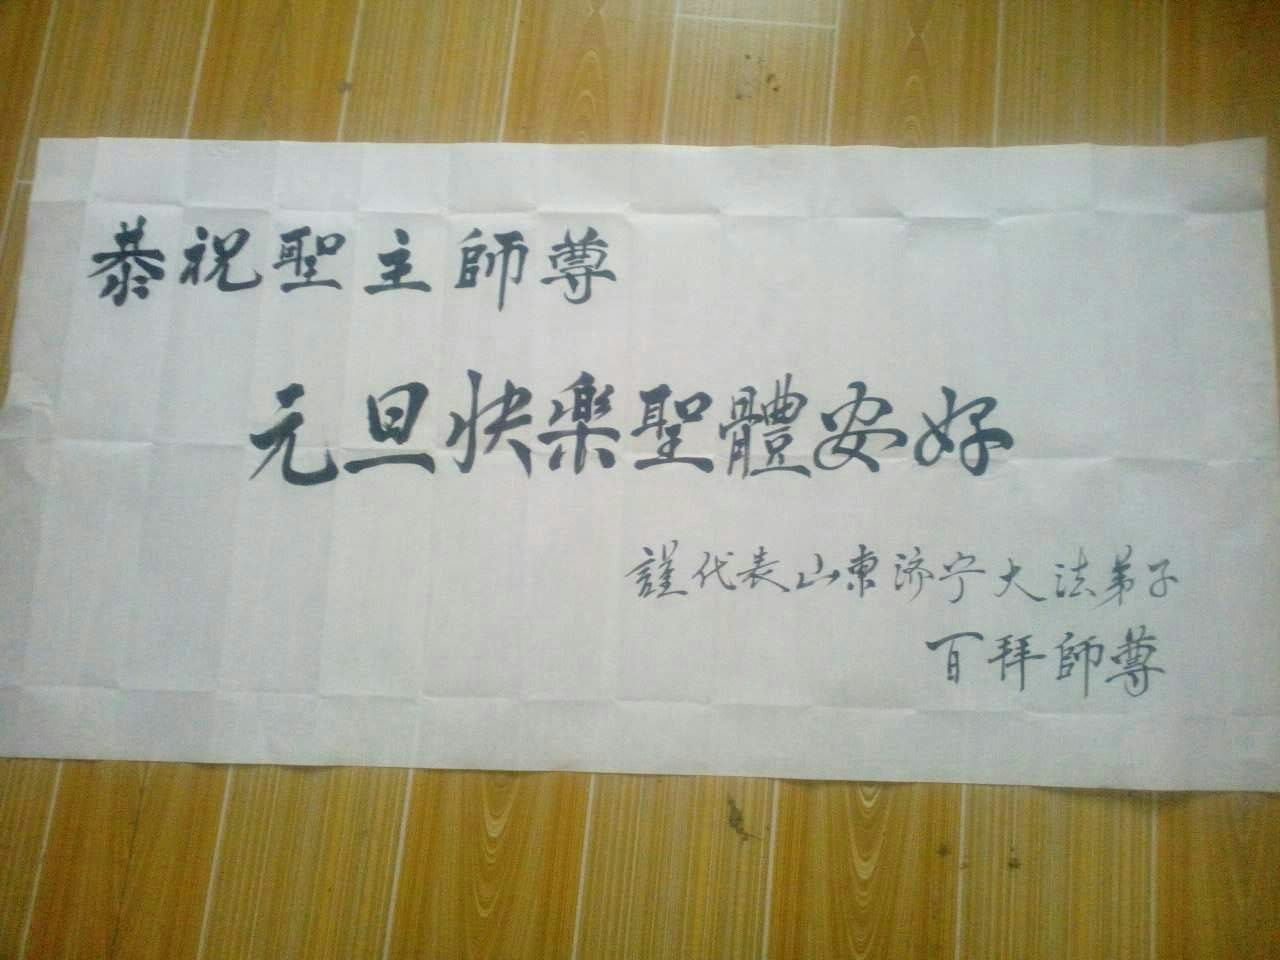 恭祝聖主師尊
元旦快樂聖體安好
謹代表山東济宁大法弟子
百拜師尊